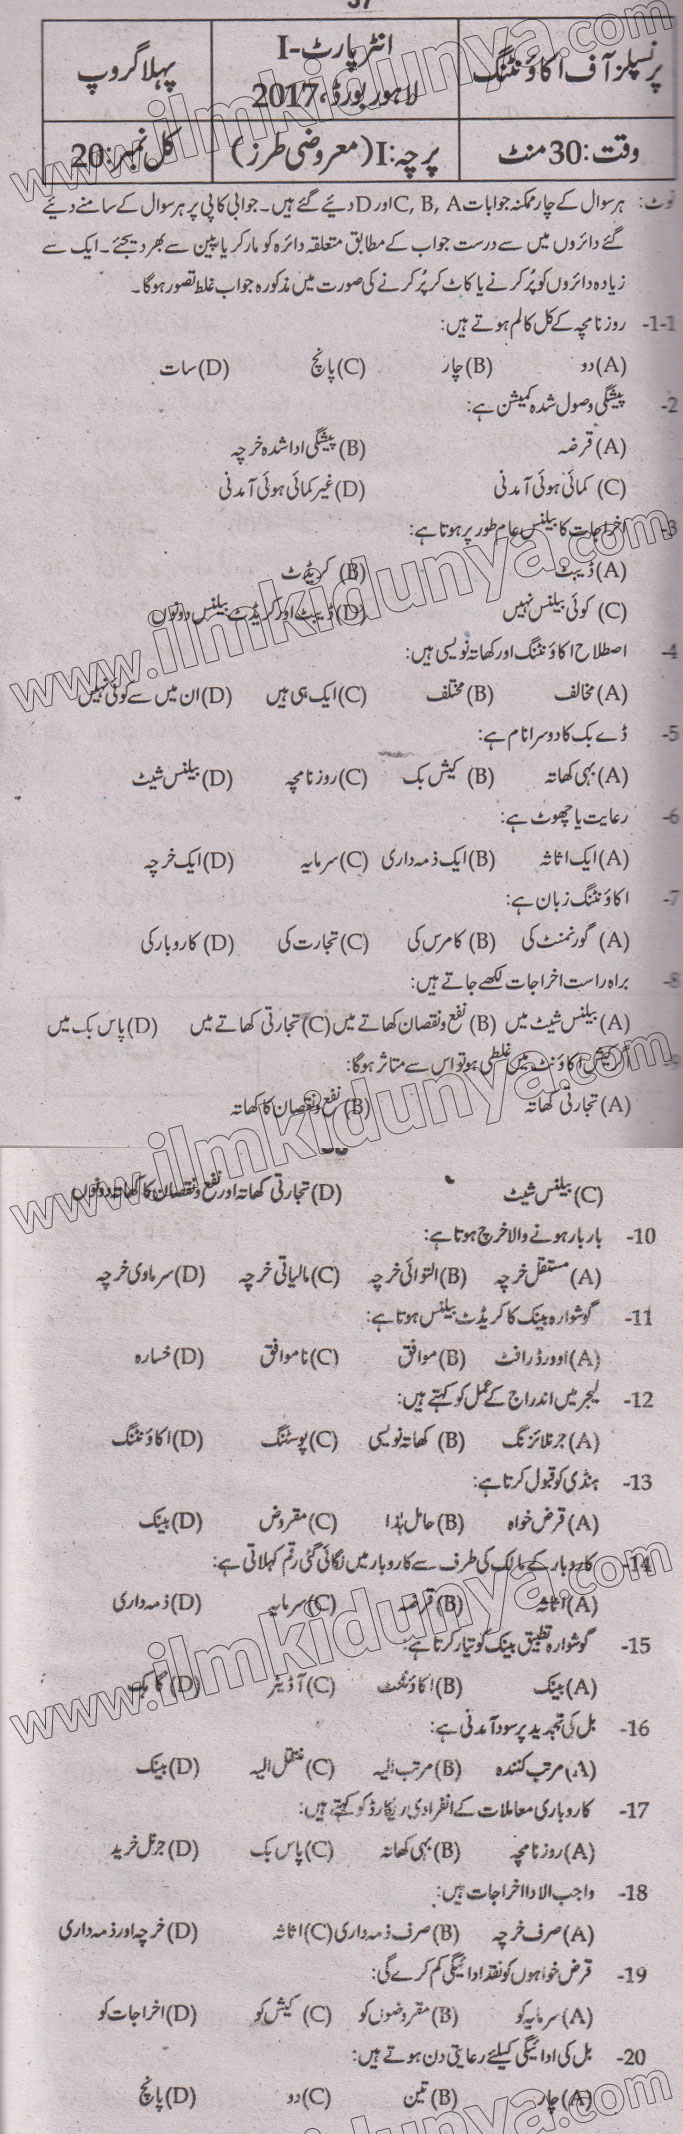 37
پرنسپلز آف اکاؤنٹنگ
انٹر پارٹ-I
لاہور بورڈ، 2017
پہلا گروپ
وقت: 30 منٹ
پرچہ: I (معروضی طرز)
کل نمبر: 20
نوٹ: ہر سوال کے چار ممکنہ جوابات C, B, A اور D دیئے گئے ہیں۔ جوابی کاپی پر ہر سوال کے سامنے دیئے
گئے دائروں میں سے درست جواب کے مطابق متعلقہ دائرہ کو مارکر یا پین سے بھر دیجئے۔ ایک سے
زیادہ دائروں کو پُر کرنے یا کاٹ کر پُر کرنے کی صورت میں مذکورہ جواب غلط تصور ہوگا۔
1-1- روزنامچہ کے کل کالم ہوتے ہیں:
(A) دو (B) چار (C) پانچ (D) سات
2- پیشگی وصول شدہ کمیشن ہے:
(A) قرضہ (B) پیشگی ادا شدہ خرچہ
(C) کمائی ہوئی آمدنی (D) غیر کمائی ہوئی آمدنی
3- اخراجات کا بیلنس عام طور پر ہوتا ہے:
(A) ڈیبٹ (B) کریڈٹ
(C) کوئی بیلنس نہیں (D) ڈیبٹ اور کریڈٹ بیلنس دونوں
4- اصطلاح اکاؤنٹنگ اور کھاتہ نویسی ہیں:
(A) مخالف (B) مختلف (C) ایک ہی ہیں (D) ان میں سے کوئی نہیں
5- ڈے بک کا دوسرا نام ہے:
(A) بہی کھاتہ (B) کیش بک (C) روزنامچہ (D) بیلنس شیٹ
6- رعایت یا چھوٹ ہے:
(A) ایک اثاثہ (B) ایک ذمہ داری (C) سرمایہ (D) ایک خرچہ
7- اکاؤنٹنگ زبان ہے:
(A) گورنمنٹ کی (B) کامرس کی (C) تجارت کی (D) کاروبار کی
8- براہ راست اخراجات لکھے جاتے ہیں:
(A) بیلنس شیٹ میں (B) نفع و نقصان کھاتے میں (C) تجارتی کھاتے میں (D) پاس بک میں
اگر کیش اکاؤنٹ میں غلطی ہو تو اس سے متاثر ہوگا:
(A) تجارتی کھاتہ (B) نفع و نقصان کا کھاتہ
(C) بیلنس شیٹ (D) تجارتی کھاتہ اور نفع و نقصان کا کھاتہ دونوں
10- بار بار ہونے والا خرچ ہوتا ہے:
(A) مستقل خرچہ (B) التوائی خرچہ (C) مالیاتی خرچہ (D) سرماوی خرچہ
11- گوشوارہ بینک کا کریڈٹ بیلنس ہوتا ہے:
(A) اوورڈرافٹ (B) موافق (C) ناموافق (D) خسارہ
12- لیجر میں اندراج کے عمل کو کہتے ہیں:
(A) جرنلائزنگ (B) کھاتہ نویسی (C) پوسٹنگ (D) اکاؤنٹنگ
13- ہنڈی کو قبول کرتا ہے:
(A) قرض خواہ (B) حامل ہٰذا (C) مقروض (D) بینک
14- کاروبار کے مالک کی طرف سے کاروبار میں لگائی گئی رقم کہلاتی ہے:
(A) اثاثہ (B) قرضہ (C) سرمایہ (D) ذمہ داری
15- گوشوارہ تطبیق بینک کو تیار کرتا ہے:
(A) بینک (B) اکاؤنٹنٹ (C) آڈیٹر (D) گاہک
16- بل کی تجدید پر سود آمدنی ہے:
(A) مرتب کنندہ (B) مرتب الیہ (C) منتقل الیہ (D) بینک
17- کاروباری معاملات کے انفرادی ریکارڈ کو کہتے ہیں:
(A) روزنامچہ (B) بہی کھاتہ (C) پاس بک (D) جرنل خرید
18- واجب الادا اخراجات ہیں:
(A) صرف خرچہ (B) صرف ذمہ داری (C) اثاثہ (D) خرچہ اور ذمہ داری
19- قرض خواہوں کو نقد ادائیگی کم کرے گی:
(A) سرمایہ کو (B) مقروضوں کو (C) کیش کو (D) اخراجات کو
20- بل کی ادائیگی کیلئے رعایتی دن ہوتے ہیں:
(A) چار (B) تین (C) دو (D) پانچ
www.ilmkidunya.com
www.ilmkidunya.com
www.ilmkidunya.com
www.ilmkidunya.com
www.ilmkidunya.com